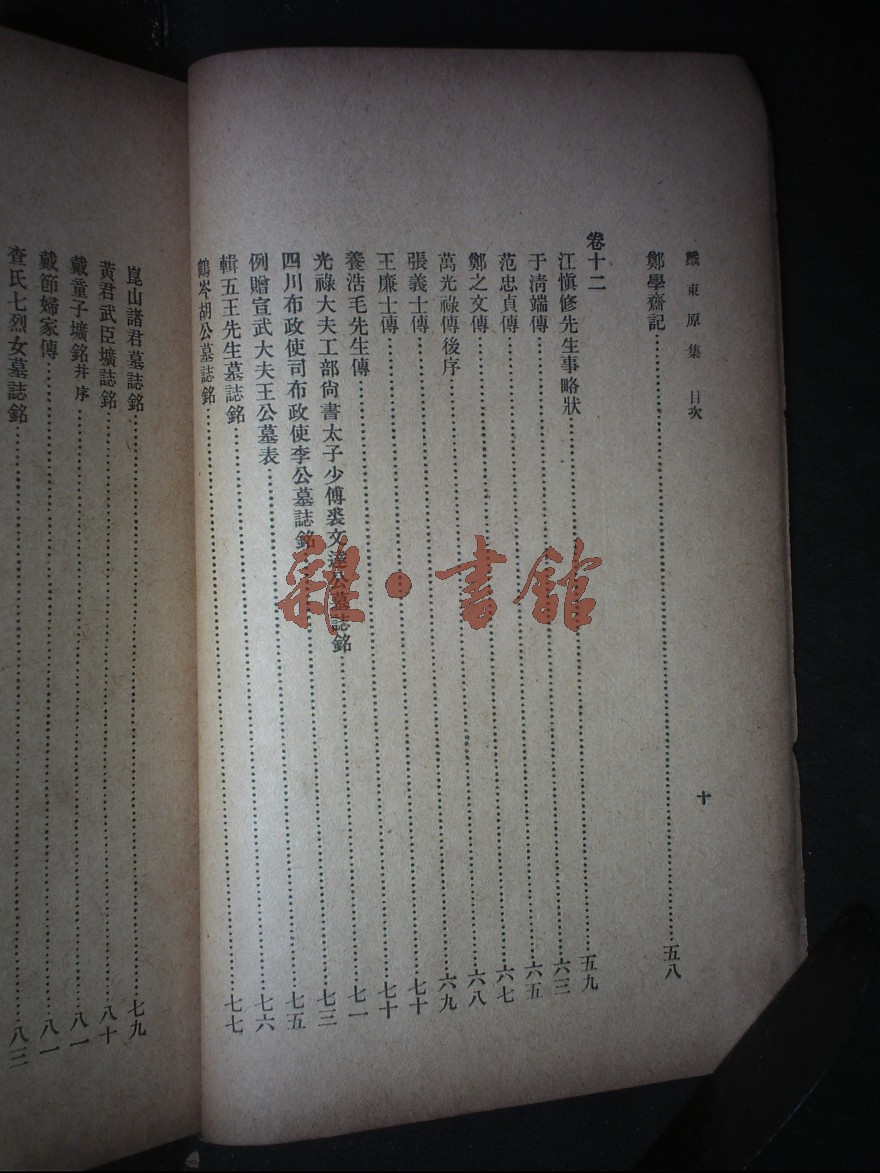 戴東原集 目次 十
鄭學齋記……五八
卷十二
江愼修先生事略狀……五九
于清端傳……六三
范忠貞傳……六五
鄭之文傳……六七
萬光祿傳後序……六八
張義士傳……六九
王廉士傳……七十
養浩毛先生傳……七十
光祿大夫工部尙書太子少傅裘文達公墓誌銘……七一
四川布政使司布政使李公墓誌銘……七三
例贈宣武大夫王公墓表……七五
輯五王先生墓誌銘……七六
鶴岑胡公墓誌銘……七七
崑山諸君墓誌銘……七九
黃君武臣壙誌銘……八十
戴童子壙銘并序……八一
戴節婦家傳……八一
查氏七烈女墓誌銘……八三
雜·書館